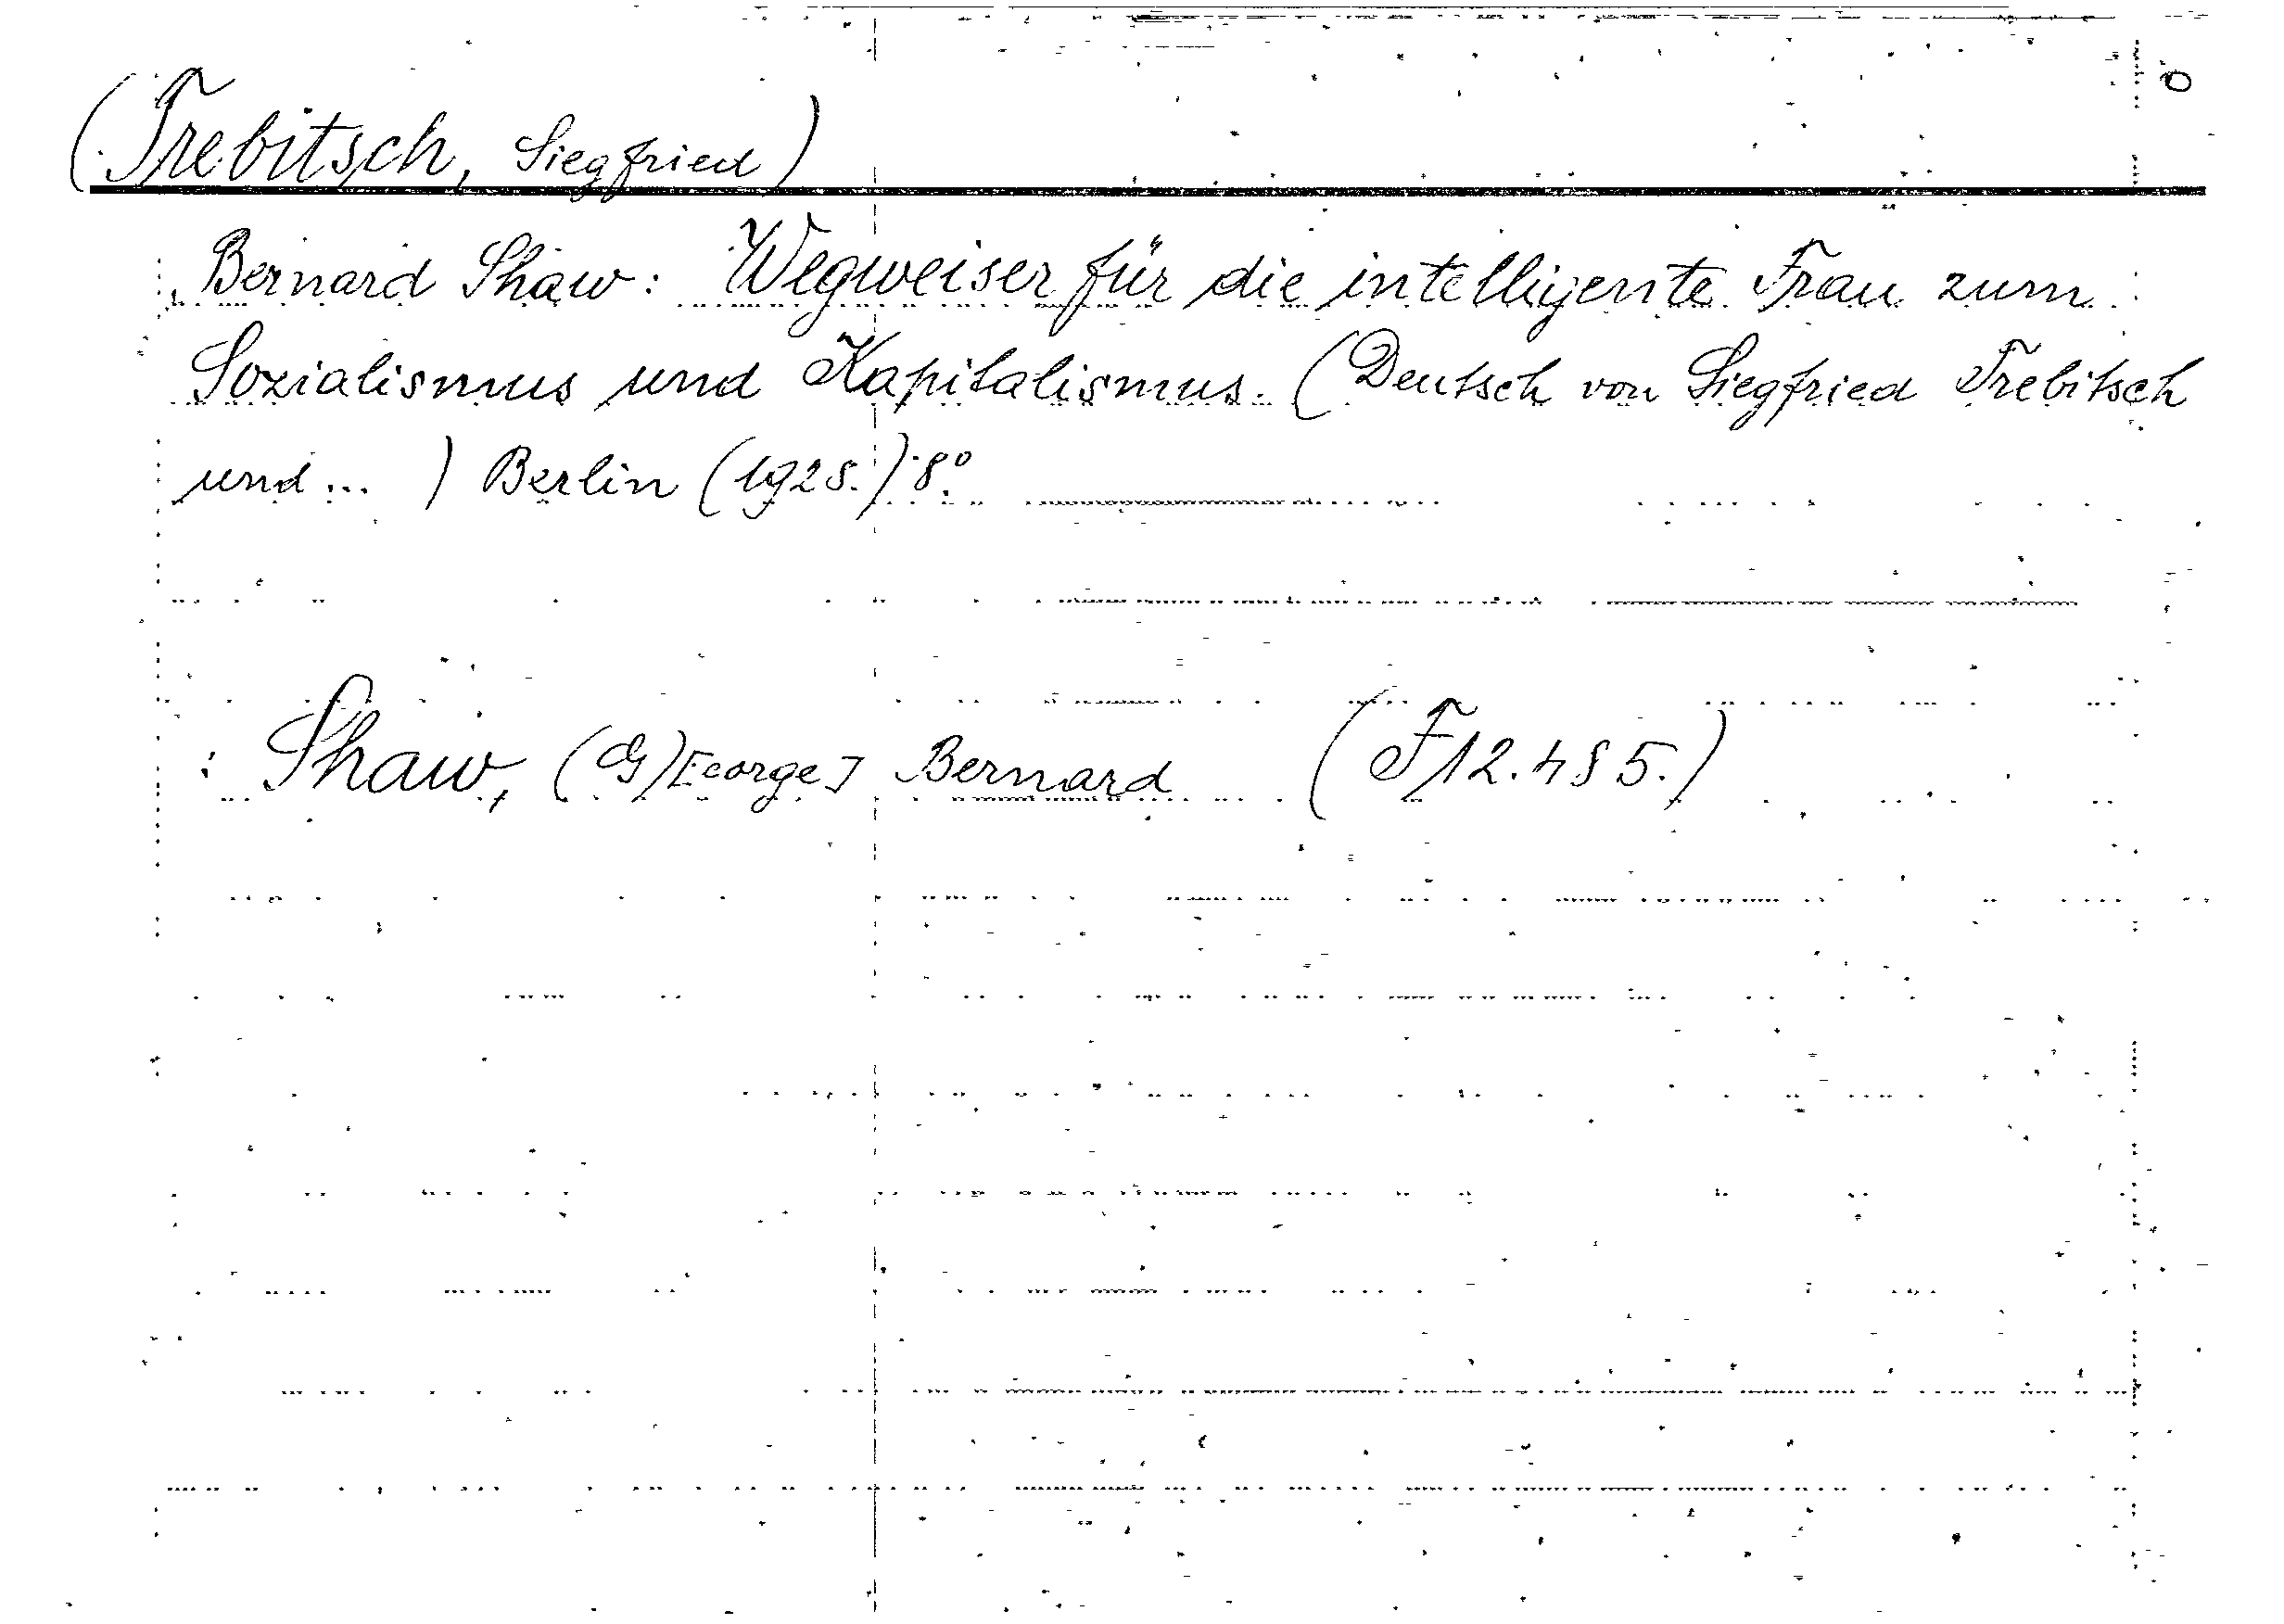 (Trebitsch, Siegfried)
Bernard Shaw: Wegweiser für die intelligente Frau zum
Sozialismus und Kapitalismus. (Deutsch von Siegfried Trebitsch
und ... ) Berlin (1928.) 8°.
: Shaw, (G)[eorge] Bernard (F12.485.)